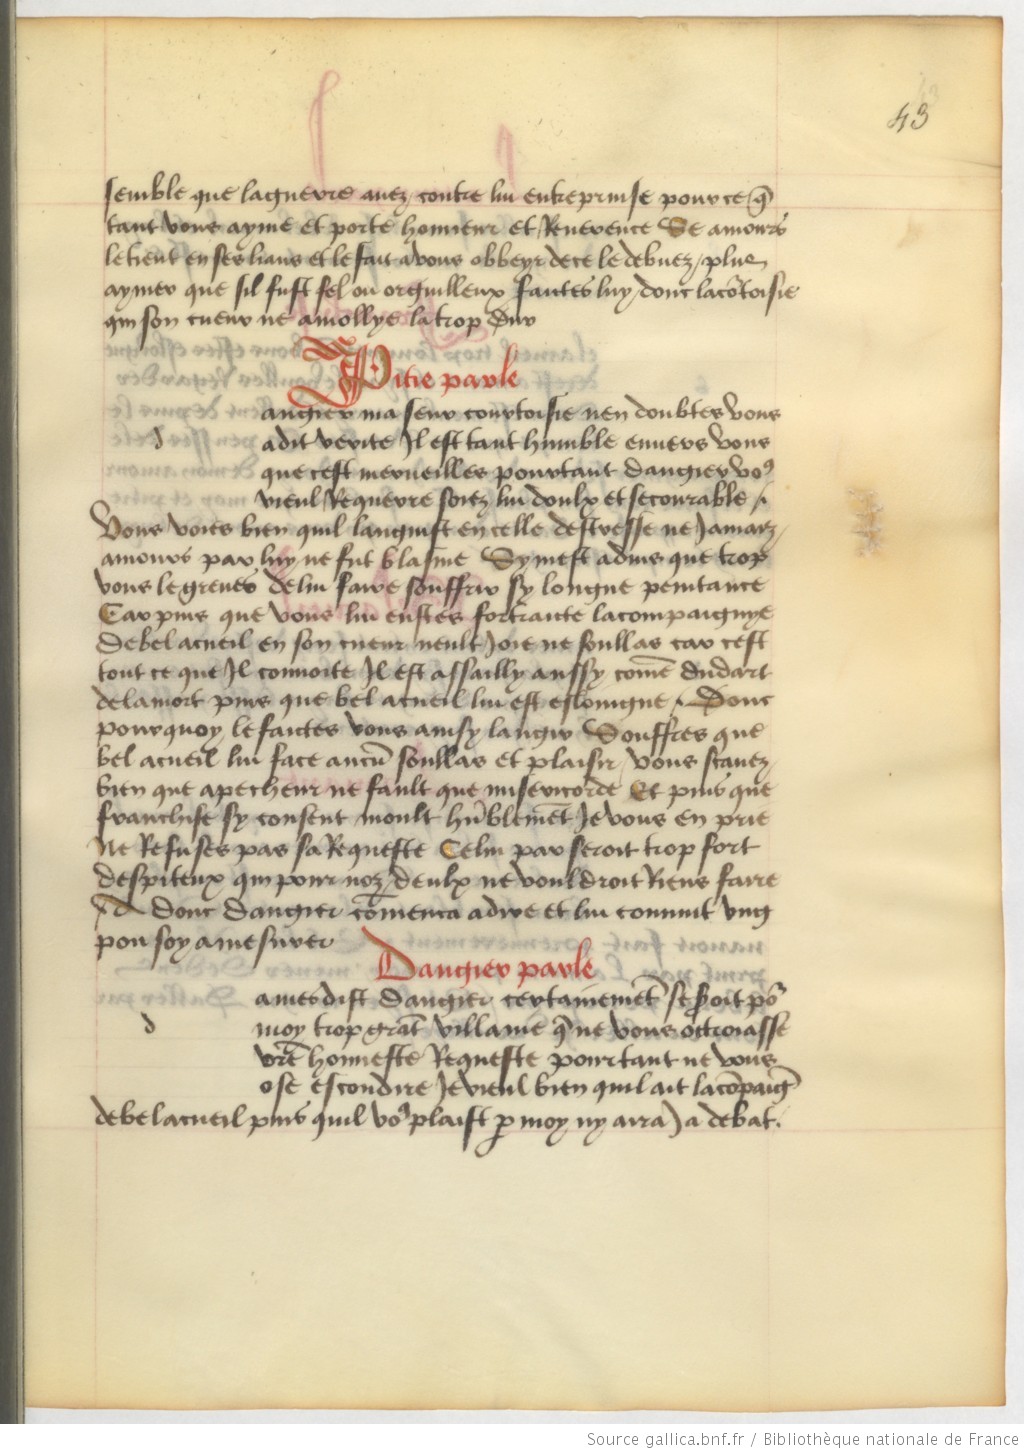 43
semble que laguerre auez contre lui entreprinse pource q̄
tant vous ayme et porte honneur et Reuerence Se amours
letient en ses lians et le fait avous obbeyr de ce le debuez plus
aymer que sil fust fel ou orguilleux faictes luy donc lacōrtoisie
qui son cueur ne amollye latrop dur
Pitie parle
angier ma seur courtoisie nen doubtes vous
d
adit verite Il est tant humble enuers vous
que cest merueilles pourtant dangier voꝰ
vieul Requerre soiez lui doulx et secourable
Vous voies bien quil languist en celle destresse ne Jamaiz
amours par luy ne fut blasme Sy mest aduis que trop
vous le greues de lui faire souffrir sy longue penitance
Car puis que vous lui eustes fortraitte lacompaignye
de bel acueil en son cueur neult Joie ne soullas car cest
tout ce que Il conuoite Il est assailly aussy com̄e du dart
de lamort puis que bel acueil lui est eslongne Donc
pourquoy le faictes vous ainsy langir Souffres que
bel acueil lui face aucū soullas et plaisir vous scauez
bien que apecheur ne fault que misericorde Et puis que
franchise sy consent moult hūblemēt Je vous en prie
Ne Refuses pas sa Requeste Celui par seroit trop fort
despiteux qui pour noz deulx ne vouldroit Riens faire
donc dangier cōmenca adire et lui conuint vng
pou soy amesurer
Dangier parle
ames dist dangier certainemēt se seroit poᵘ
d
moy trop grāt villanie q̄ ne vous octroiasse
vr̄e honneste Requeste pourtant ne vous
ose escondire Je vieul bien quil ait lacōpaiḡ
de bel acueil puis quil voꝰ plaist ꝑ moy ny aura Ja debat.
Source gallica.bnf.fr / Bibliothèque nationale de France